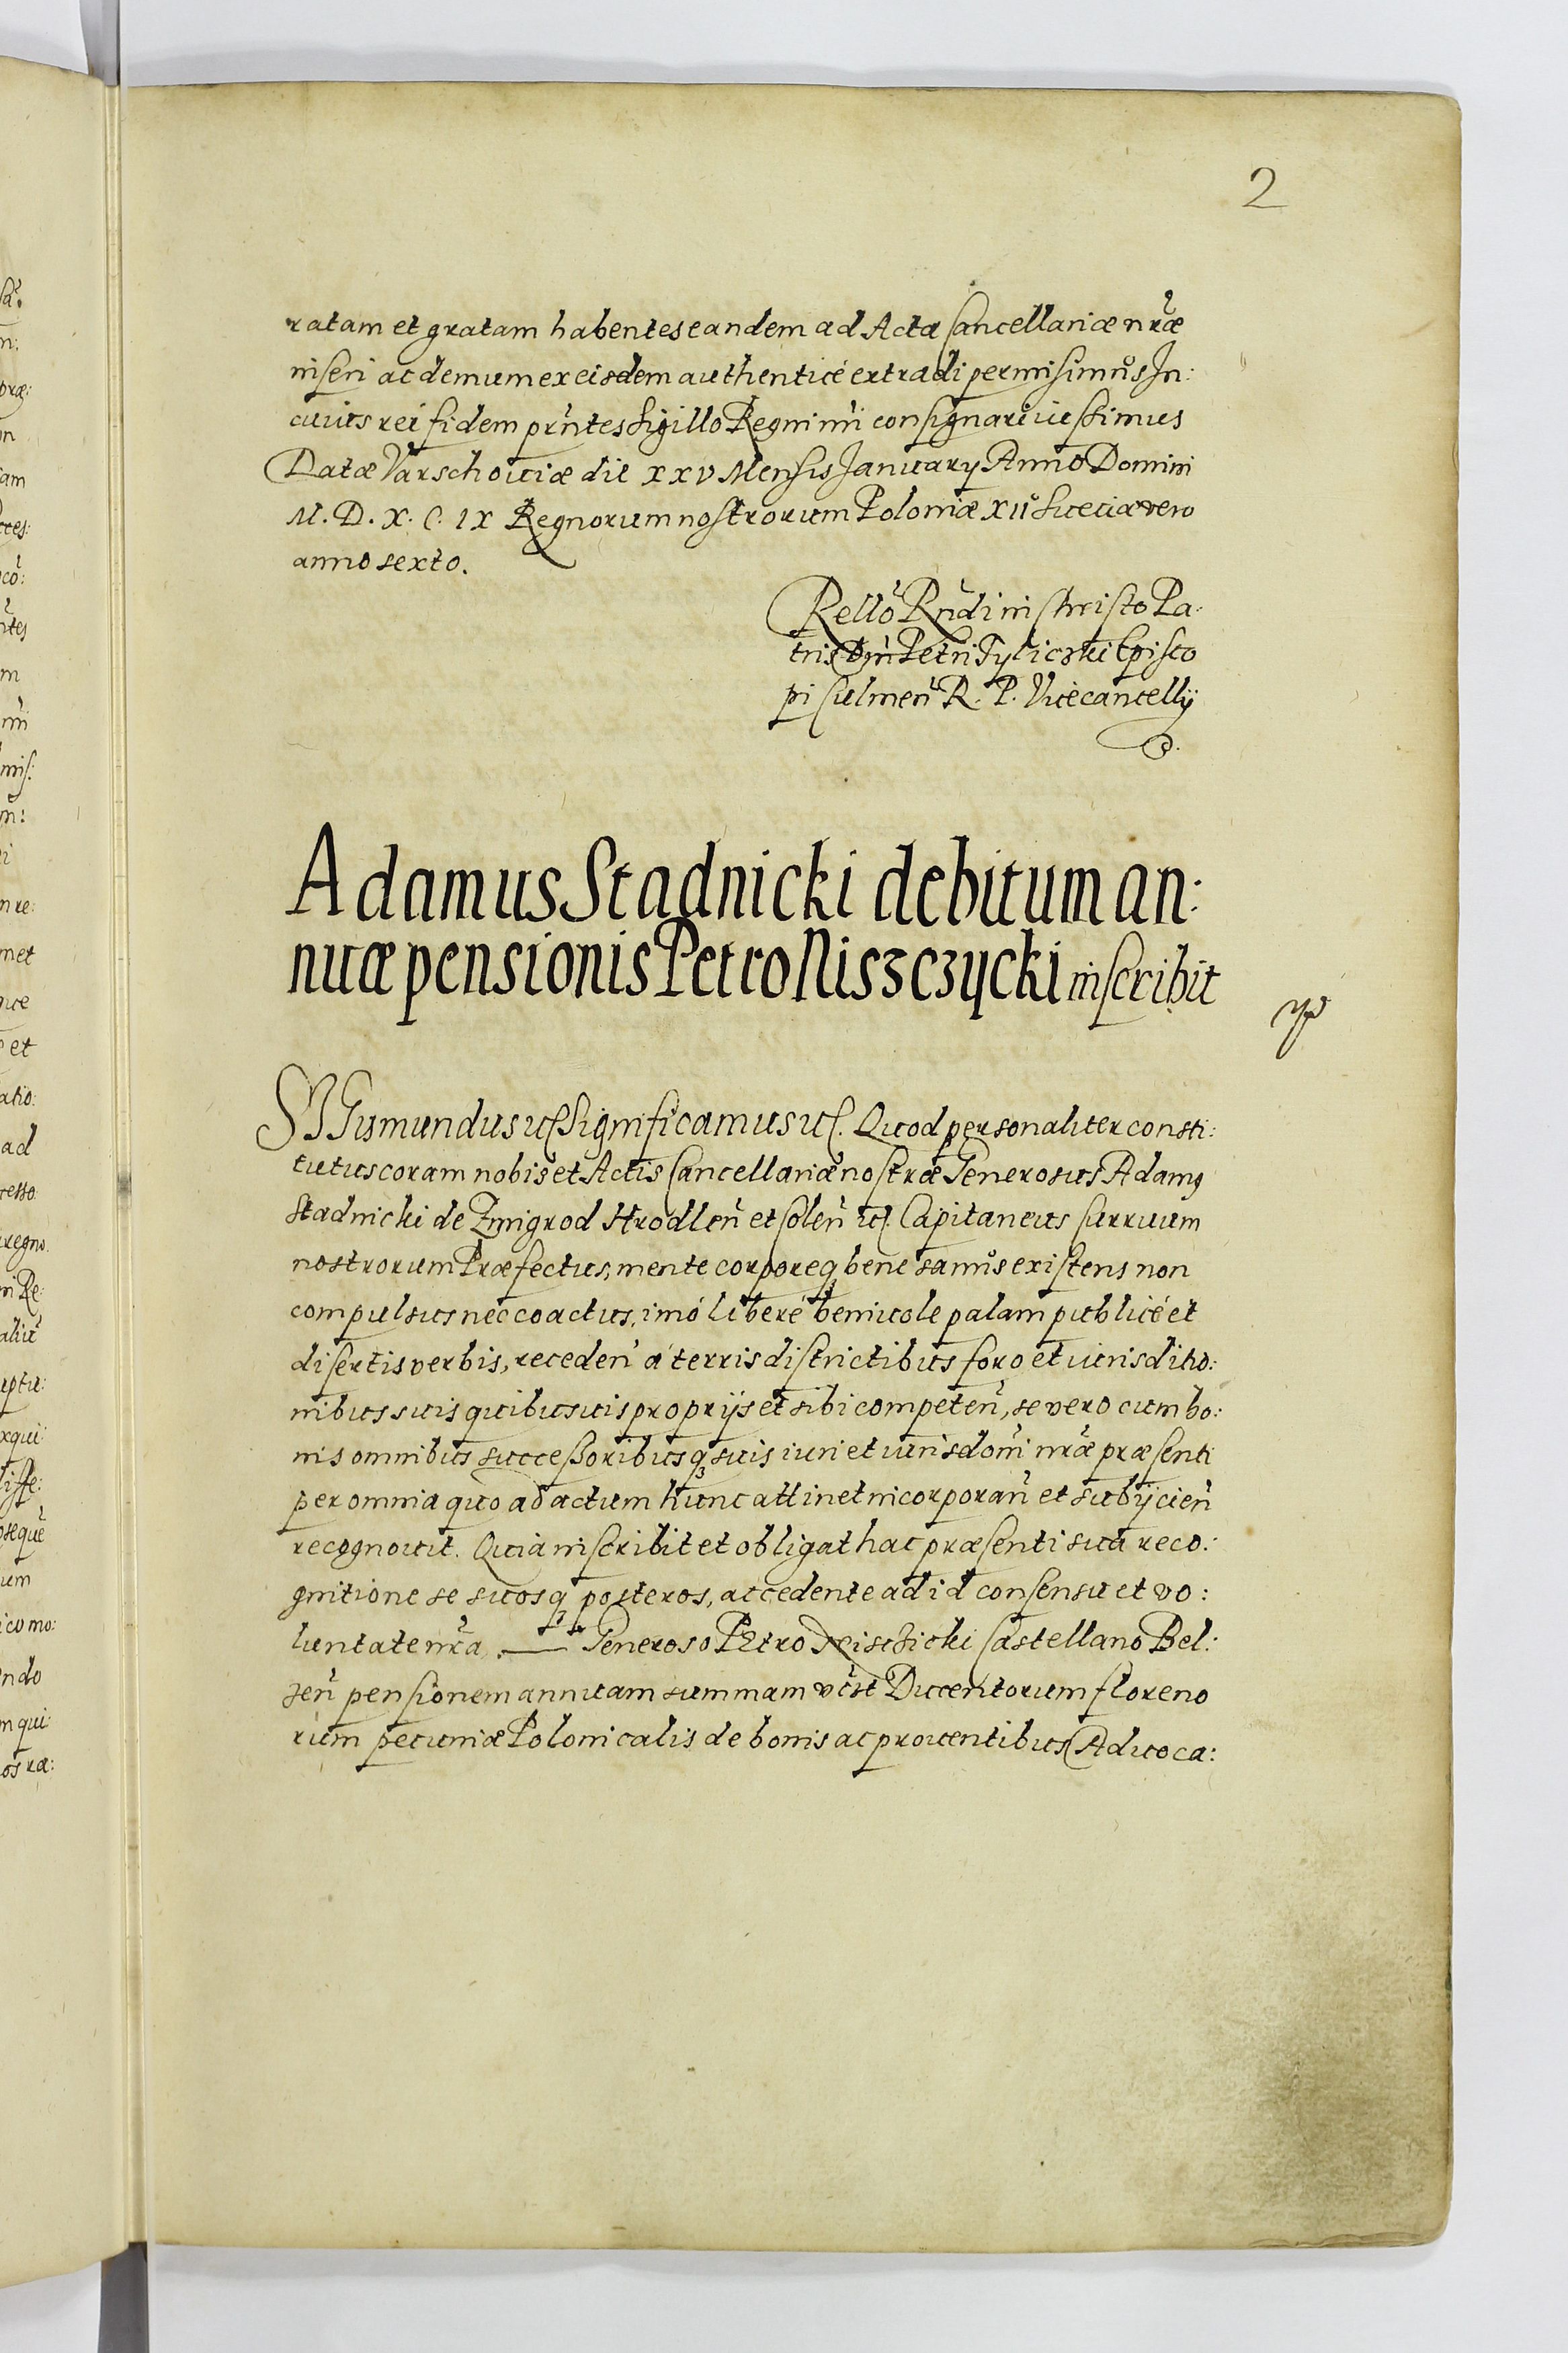 2
ratam et gratam habentes eandem ad Acta Cancellariæ nr̃æ
inseri ac demum ex eisdem authenticé extradi permisimus In:
cuius rei fidem prñtes Sigillo Regni nr̃i consignari iussimus
Datæ Varschoviæ die XXV Mensis Januarÿ Anno Domini
M. D. X. C. IX Regnorum nostrorum Poloniæ XII Sueciæ vero
anno sexto.
Rello Rñdi in Christo Pa:
tris Dñi Petri Tyliczki Episco
pi Culmeñ R. P. Vicecancellÿ
Adamus Stadnicki debitum an:
nuæ pensionis Petro Niszczycki inscribit
SIGismundus etc Significamus etc. Quod personaliter consti:
tutus coram nobis et Actis Cancellariæ nostræ Generosus Adamꝰ
Stadnicki de Zmigrod Hrodleñ et Soleñ etc. Capitaneus Curruum
nostrorum Præfectus, mente corporeq́ bene sanus existens non
compulsus nec coactus, imó liberé benivole palam publicé et
disertis verbis, recedeñ á terris districtibus foro et iurisditio:
nibus suis quibusuis proprijs et sibi competeñ, se vero cum bo:
nis omnibus successoribusq́ suis iuri et iurisdoñi nr̃æ præsenti
per omnia quo ad actum hunc attinet incorporañ et subijcieñ
recognovit. Quia inscribit et obligat hac præsenti sua reco:
gnitione se suosq́ posteros, accedente ad id consensu et vo:
luntate nr̃a, — Generoso Petro Nisczicki Castellano Bel:
zeñ pensionem annuam summam vc̃st Ducentorum floreno
rum pecuniæ Polonicalis de bonis ac proventibus Advoca: